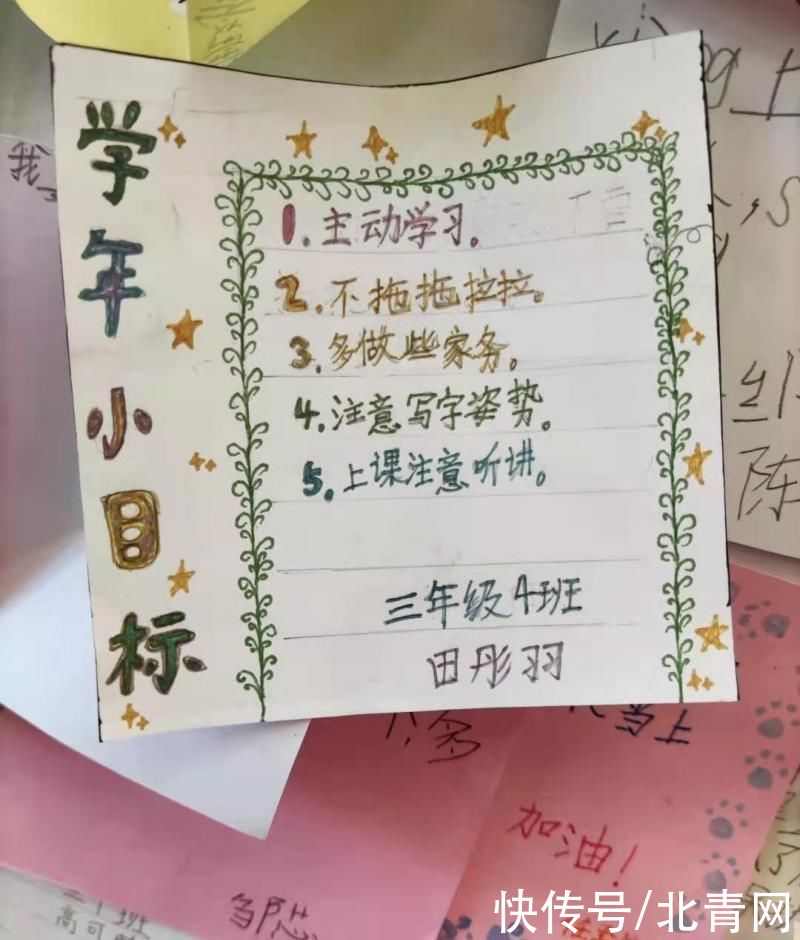 学年小目标
1.主动学习。
2.不拖拖拉拉。
3.多做些家务。
4.注意写字姿势。
5.上课注意听讲。
三年级4班
田彤羽
我
陈
加油！
快传号/北青网